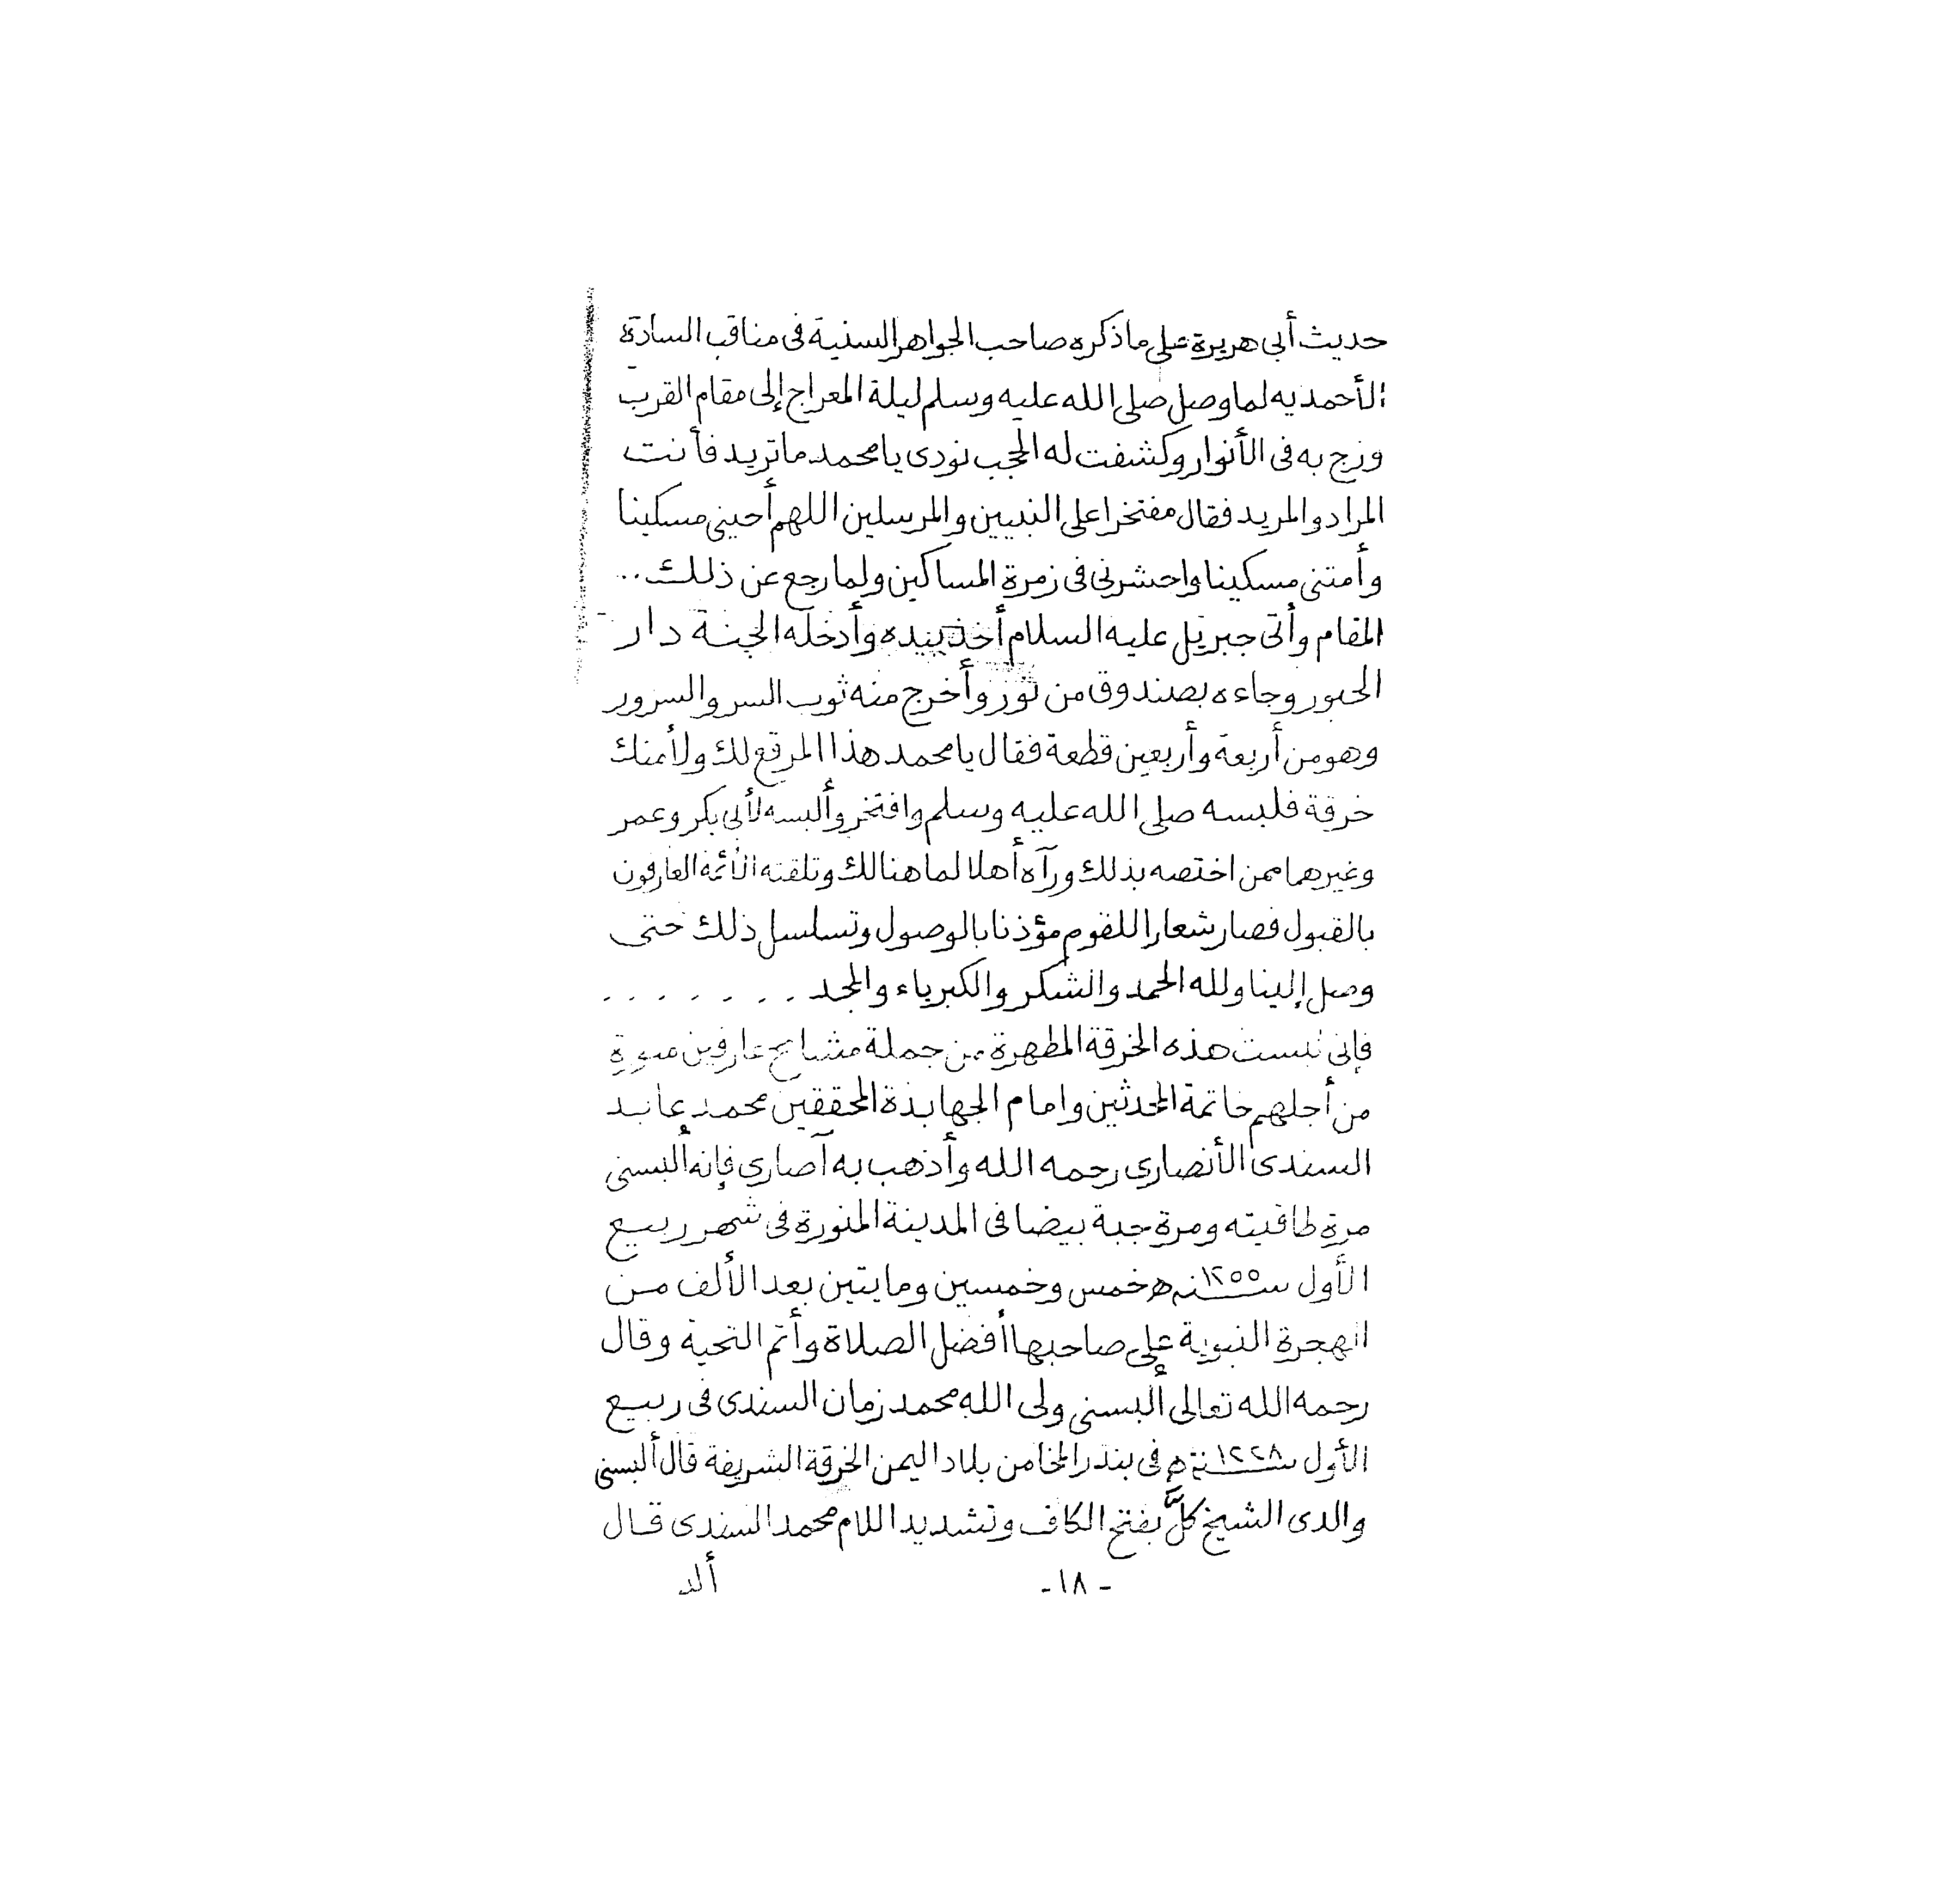 حديث أبى هريرة على ما ذكره صاحب الجواهر السنية فى مناقب السادة
الأحمديه لما وصل صلى الله عليه وسلم ليلة المعراج إلى مقام القرب
وزج به فى الأنوار وكشفت له الحجب نودى يا محمد ما تريد فأنت
المراد والمريد فقال مفتخرا على النبيين والمرسلين اللهم أحينى مسكينا
وأمتنى مسكينا واحشرنى فى زمرة المساكين ولما رجع عن ذلك ..
المقام وأتى جبريل عليه السلام أخذ بيده وأدخله الجنة دار
الحبور وجاءه بصندوق من نور وأخرج منه ثوب السر والسرور
وهو من أربعة وأربعين قطعة فقال يا محمد هذا المرقع لك ولأمتك
خرقة فلبسه صلى الله عليه وسلم وافتخر وألبسه لأبى بكر وعمر
وغيرهما ممن اختصه بذلك ورآه أهلا لما هنالك وتلقته الأئمة العارفون
بالقبول فصار شعارا للقوم مؤذنا بالوصول وتسلسل ذلك حتى
وصل إلينا ولله الحمد والشكر والكبرياء والمجد . . . . . . .
فإنى لبست هذه الخرقة المطهرة من جملة مشايخ عارفين
من أجلهم خاتمة المحدثين وامام الجهابذة المحققين محمد عابد
السندى الأنصارى رحمه الله وأذهب به آصارى فإنه ألبسنى
مرة طاقيته ومرة جبة بيضا فى المدينة المنورة فى شهر ربيع
الأول سنة ١٢٥٥ ه خمس وخمسين ومايتين بعد الألف من
الهجرة النبوية على صاحبها أفضل الصلاة وأتم التحية وقال
رحمه الله تعالى ألبسنى ولى الله محمد زمان السندى فى ربيع
الأول سنة ١٢٢٨ ه فى بندر المخا من بلاد اليمن الخرقة الشريفة قال ألبسنى
والدى الشيخ كلّ بفتح الكاف وتشديد اللام محمد السندى قال
- ١٨ -
ألد